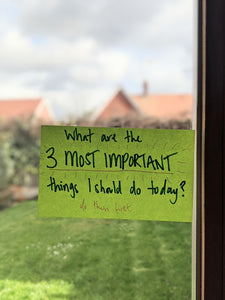 What are the
3 MOST IMPORTANT
things I should do today?
do them first